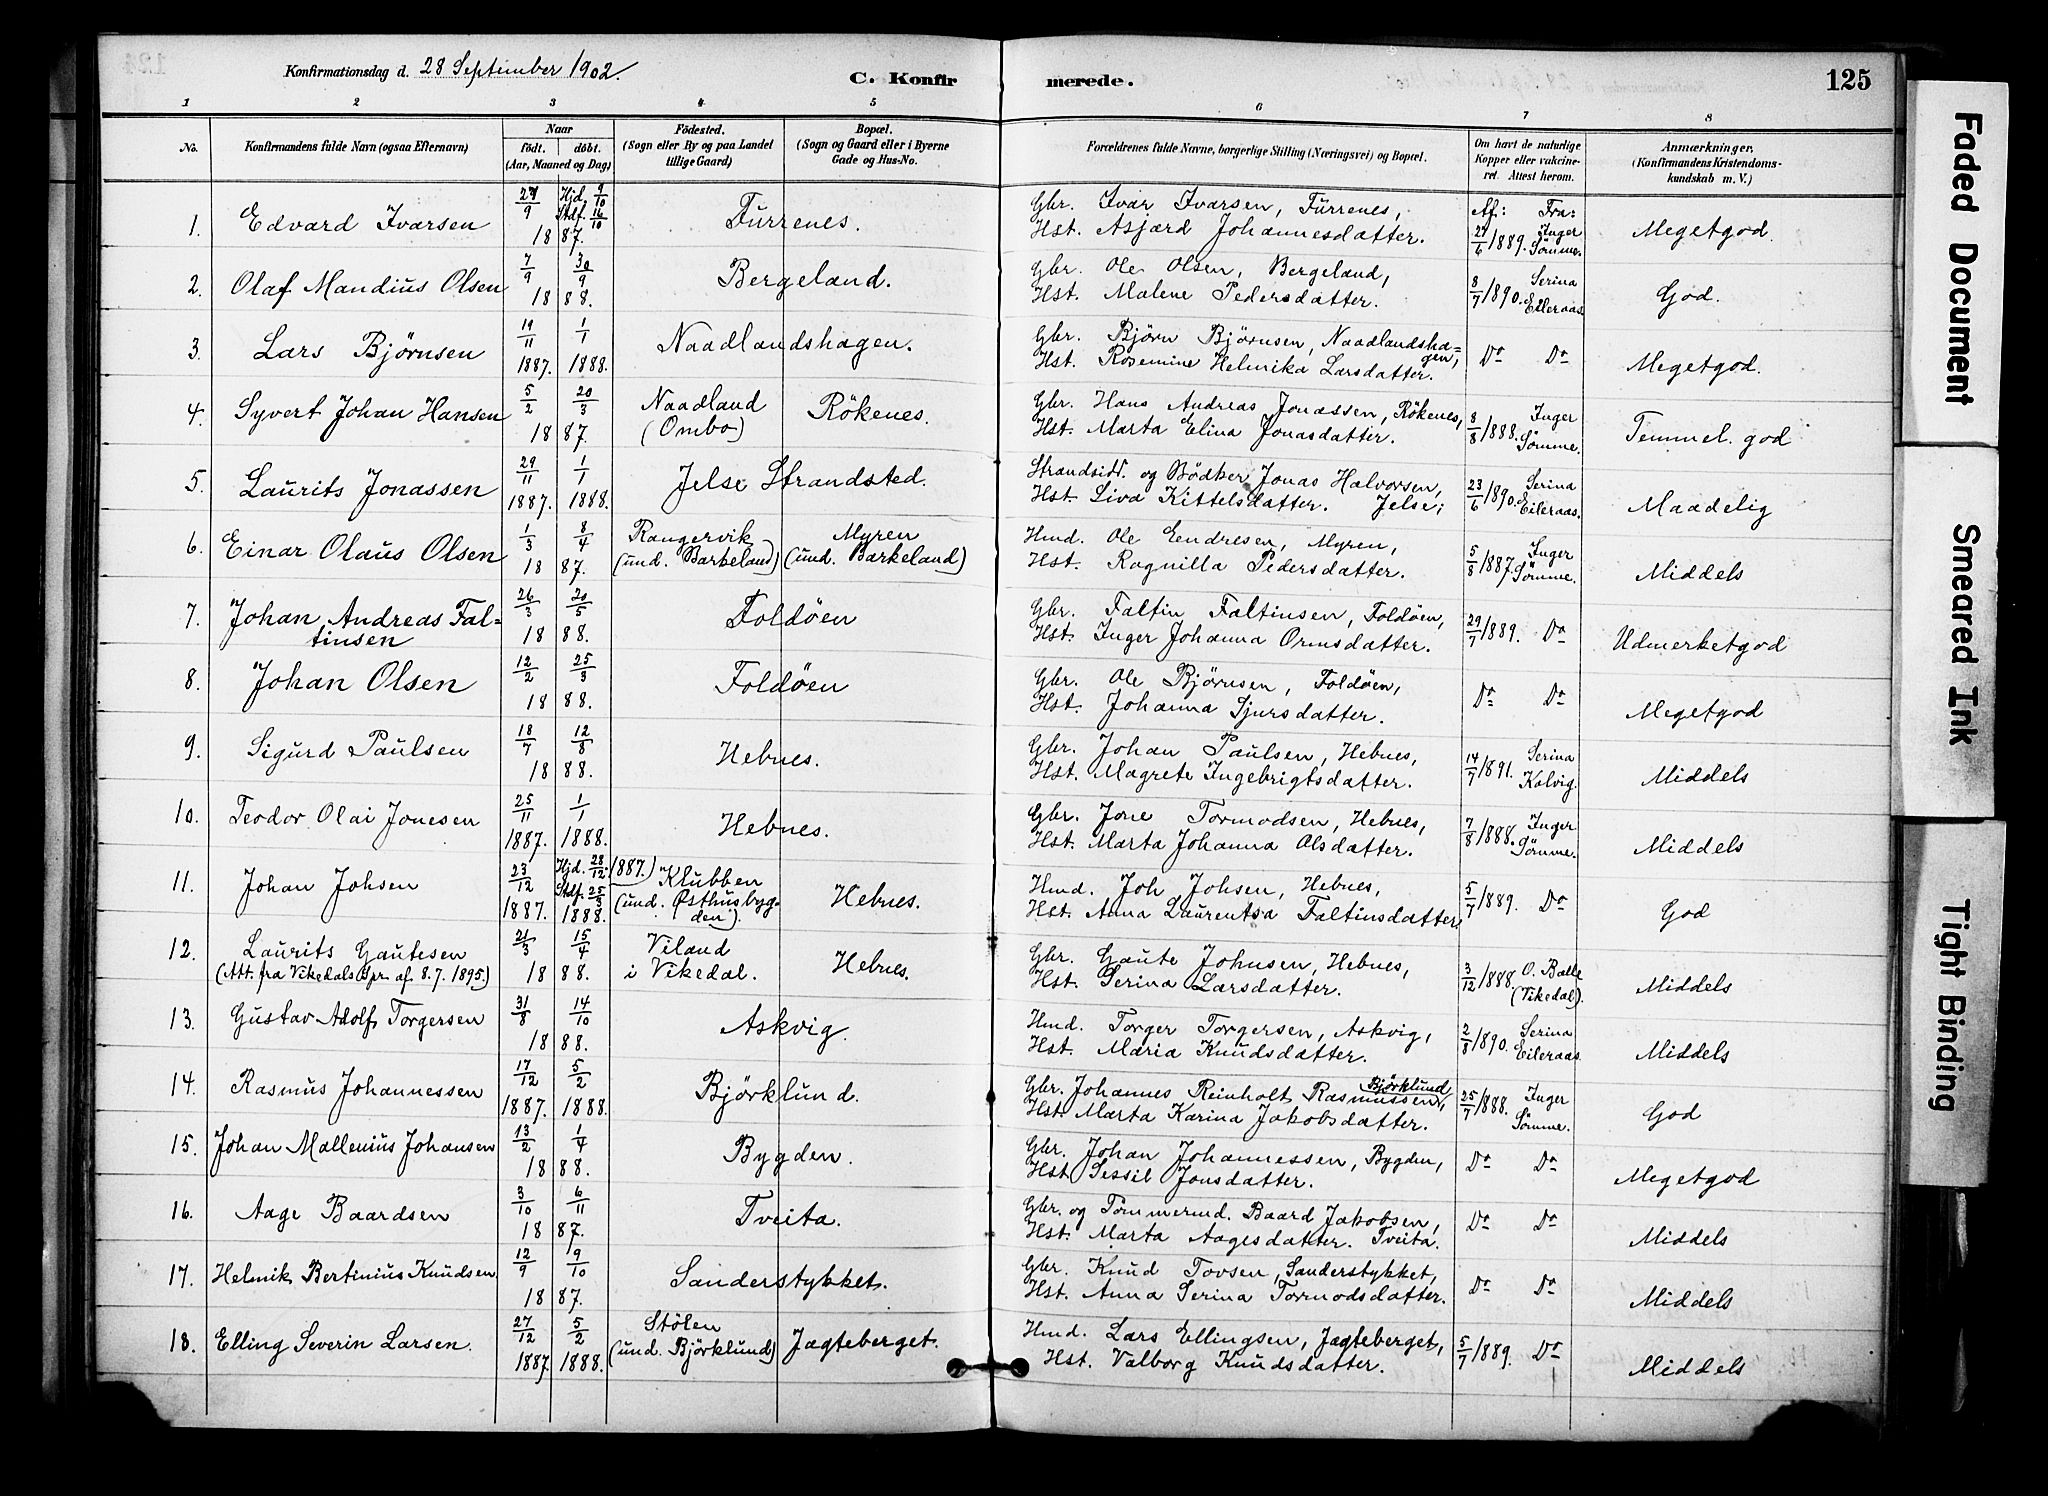 Konfirmationsdag d. 28 September 1902.
C. Konfir merede. 125
1 2 3 4 5 6 7 8
No. Konfirmandens fulde Navn (ogsaa Efternavn) Naar født. døbt. (Aar, Maaned og Dag) Födested. (Sogn eller By og paa Landet tillige Gaard) Bopæl. (Sogn og Gaard eller i Byerne Gade og Hus-No. Forældrenes fulde Navne, borgerlige Stilling (Næringsvei) og Bopæl. Om havt de naturlige Kopper eller vakcineret. Attest herom. Anmærkninger. (Konfirmandens Kristendomskundskab m. V.)
1. Edvard Ivarsen 27/9 Hjd. 9/10 Stdf. 16/10 1887. Furrenes. Gbr. Ivar Ivarsen, Furrenes, Af: Fra:
Hst. Asjærd Johannesdatter. 27/6 1889. Inger Sømme. Megetgod.
2. Olaf Mandius Olsen 7/9 30/9 1888. Bergeland. Gbr. Ole Olsen, Bergeland,
Hst. Malene Pedersdatter. 8/7 1890. Serina Eileraas. God.
3. Lars Bjørnsen 19/11 1887. 1/1 1888. Naadlandshagen. Gbr. Bjørn Bjørnsen, Naadlandsha=
gen, Hst. Rosemine Helmika Larsdatter. Do Do Megetgod.
4. Syvert Johan Hansen 5/2 20/3 1887. Naadland (Ombo) Rökenes. Gbr. Hans Andreas Jonassen, Rökenes,
Hst. Marta Elina Jonasdatter. 8/8 1888. Inger Sømme. Temmel. god
5. Laurits Jonassen 29/11 1887. 1/1 1888. Jelse Strandsted. Strandsidd. og Bödker Jonas Halvorsen,
Hst. Siva Kittelsdatter. Jelse; 23/6 1890. Serina Eileraas. Maadelig
6. Einar Olaus Olsen 1/3 8/4 1887. Rangervik (und. Barkeland) Myren (und. Barkeland) Hmd. Ole Endresen, Myren,
Hst. Ragnilla Pedersdatter. 5/8 1887. Inger Sømme. Middels
7. Johan Andreas Fal=
tinsen 26/3 20/5 1888. Foldöen Gbr. Faltin Faltinsen, Foldöen,
Hst. Inger Johanna Ormsdatter. 29/7 1889. Do Udmerketgod
8. Johan Olsen 12/2 25/3 1888. Foldöen Gbr. Ole Bjørnsen, Foldöen,
Hst. Johanna Sjursdatter. Do Do Megetgod
9. Sigurd Paulsen 18/7 12/8 1888. Hebnes. Gbr. Johan Paulsen, Hebnes,
Hst. Magrete Ingebrigtsdatter. 14/7 1891. Serina Kolvig. Middels
10. Teodor Olai Jonesen 25/11 1887. 1/1 1888. Hebnes. Gbr. Jone Tormodsen, Hebnes,
Hst. Marta Johanna Olsdatter. 7/8 1888. Inger Sømme. Middels
11. Johan Johsen 23/12 1887. Hjd. 28/12 (1887.) Stdf. 25/3 1888. Klubben (und. Østhusbyg=
den). Hebnes. Hmd. Joh Johsen, Hebnes,
Hst. Anna Laurentsa Faltinsdatter 5/7 1889. Do God
12. Laurits Gautesen
(Att. fra Vikedals Spr. af. 8.7.1895.) 21/3 15/4 1888. Viland i Vikedal. Hebnes. Gbr. Gaute Johnsen, Hebnes,
Hst. Serina Larsdatter. 3/12 1888. O. Balle (Vikedal). Middels
13. Gustav Adolf Torgersen 31/8 14/10 1888. Askvig. Hmd. Torger Torgersen, Askvig,
Hst. Maria Knudsdatter. 2/8 1890. Serina Eileraas. Middels
14. Rasmus Johannessen 17/12 1887. 5/2 1888. Björklund. Gbr. Johannes Reinholt Rasmussen, Björklund
Hst. Marta Karina Jakobsdatter. 25/7 1888. Inger Sømme. God
15. Johan Mallenius Johansen 13/2 1/4 1888. Bygden. Gbr. Johan Johannessen, Bygden,
Hst Sessil Jonsdatter. Do Do Megetgod
16. Aage Baardsen 3/10 6/11 1887. Tveita. Gbr. og Tömmermd. Baard Jakobsen,
Hst. Marta Aagesdatter. Tveita. Do Do Middels
17. Helmik Bertinius Knudsen. 12/9 9/10 1887. Sanderstykket. Gbr. Knud Tovsen, Sanderstykket,
Hst. Anna Serina Tormodsdatter. Do Do Middels
18. Elling Severin Larsen. 27/12 1887. 5/2 1888. Stölen (und. Björklund) Jagteberget. Hmd. Lars Ellingsen, Jagteberget,
Hst. Valborg Knudsdatter. 5/7 1889. Do Middels
Faded Document
Smeared Ink
Tight Binding